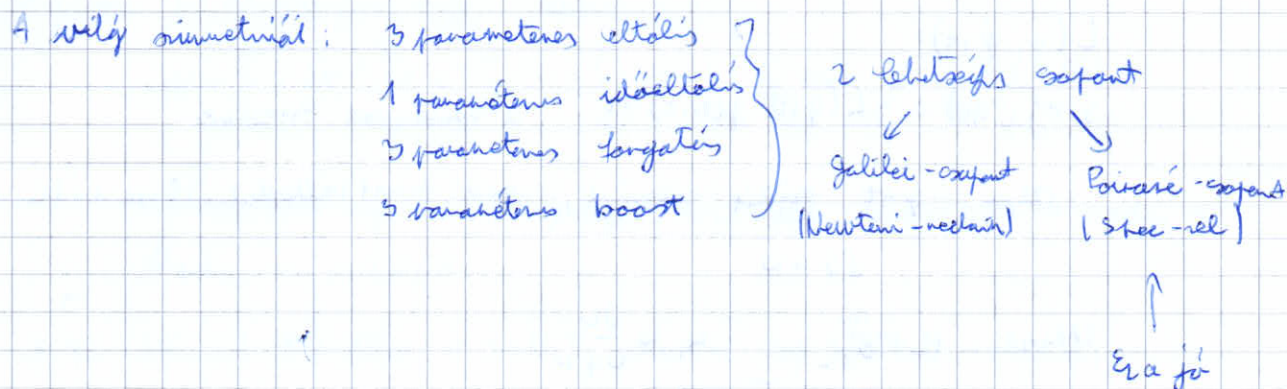 A világ szimmetriái: 3 paraméteres eltolás
1 paraméteres időeltolás
3 paraméteres forgatás
3 paraméteres boost
2 lehetséges csoport
Galilei-csoport
(Newtoni-mechanika)
Poincaré-csoport
(Spec-rel)
Ez a jó